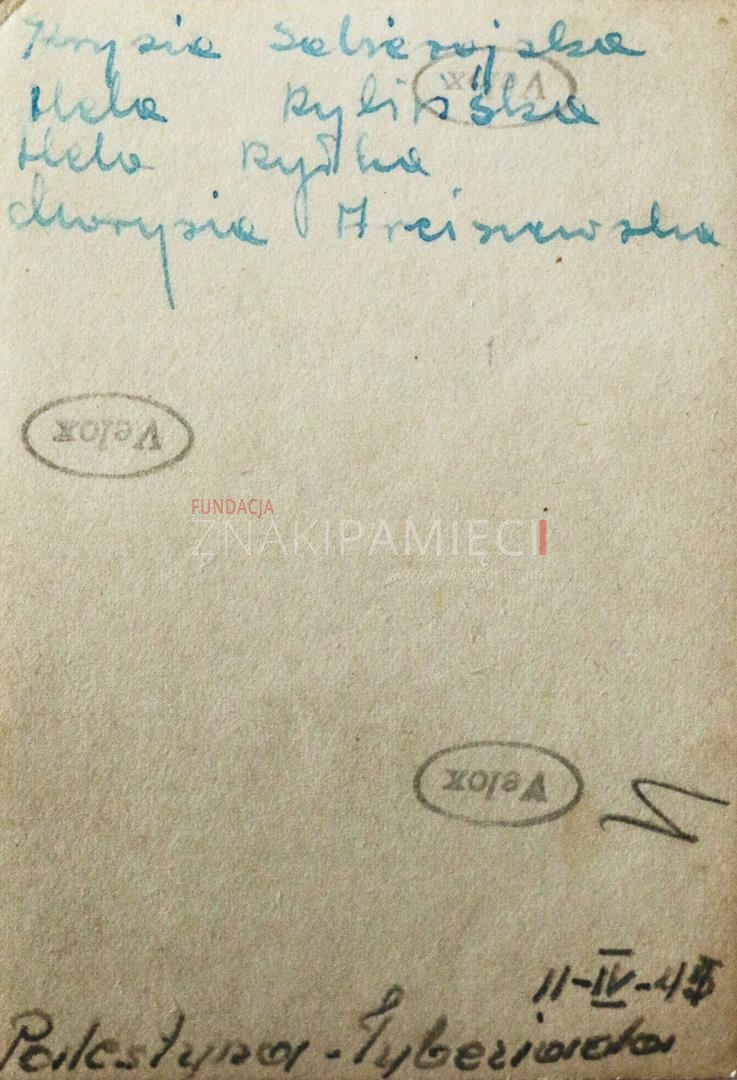 Krysia Sobierajska
Velox
Hela Rylińska
Hela
Marysia Arciszewska
Velox
FUNDACJA
ZNAKIPAMIĘCI
Velox
N
11-IV-45
Palestyna - Tyberiada